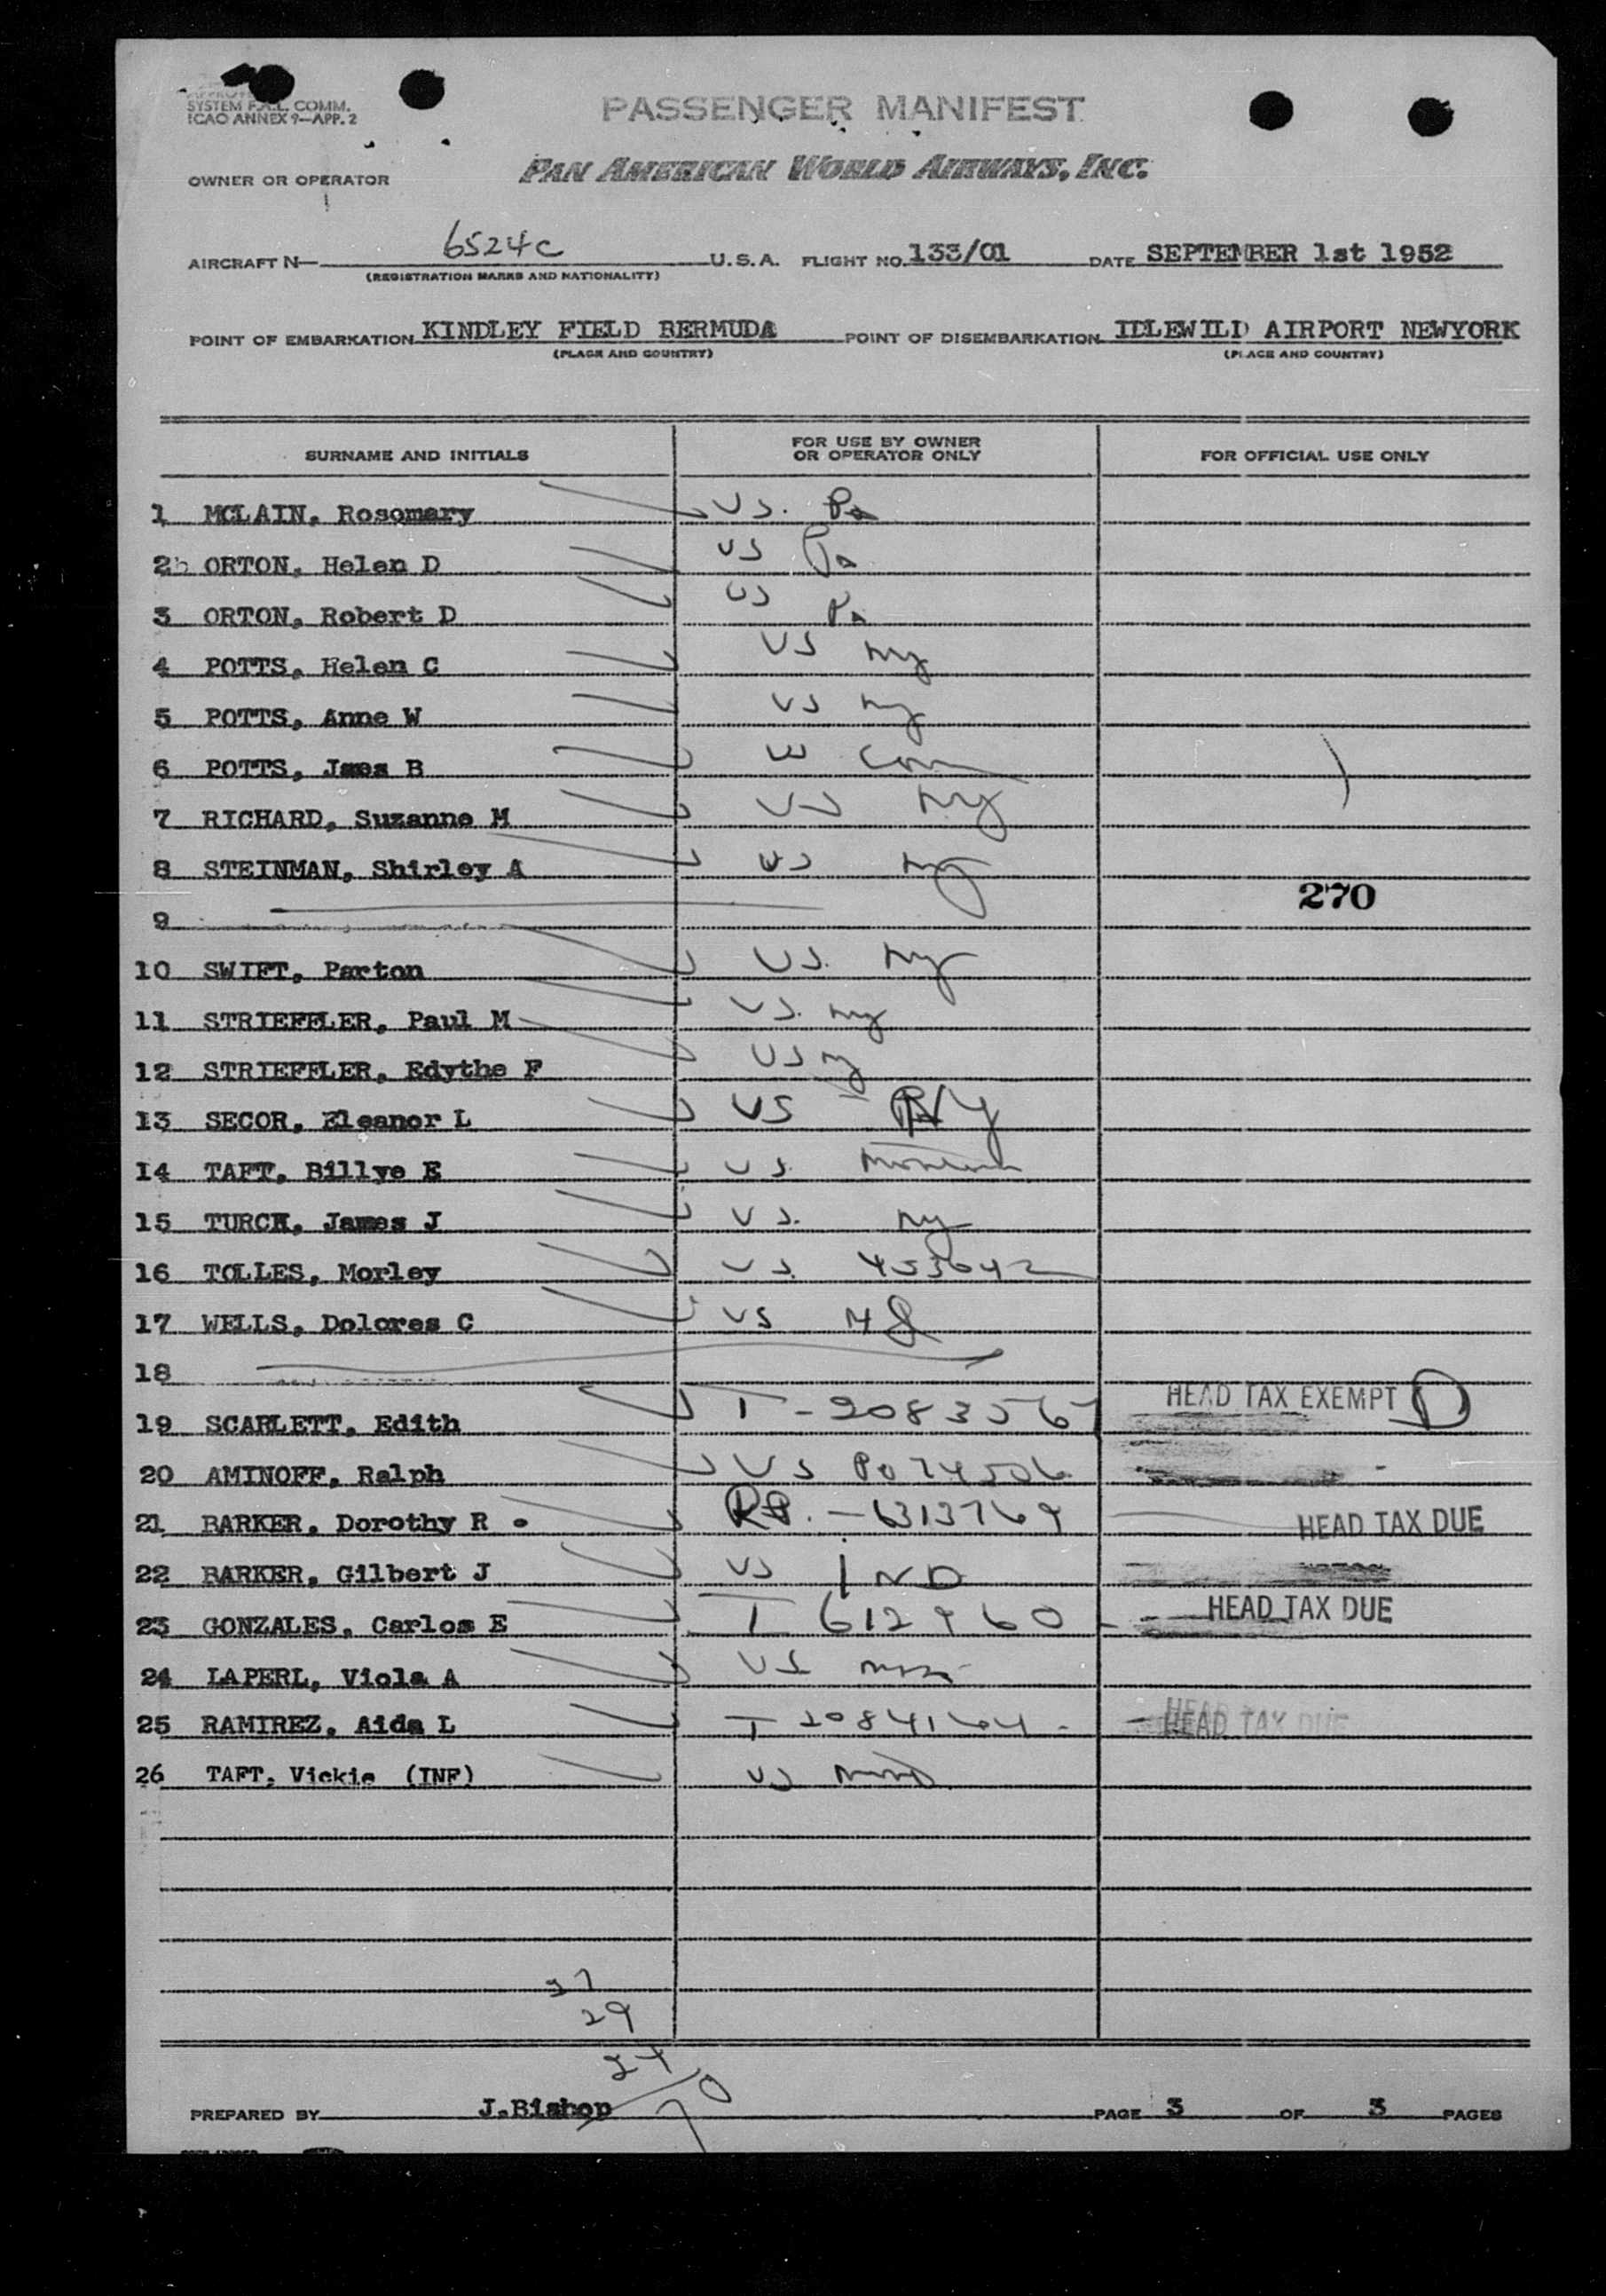 SYSTEM F.A.L. COMM.
ICAO ANNEX 9—APP. 2
PASSENGER MANIFEST
OWNER OR OPERATOR
PAN AMERICAN WORLD AIRWAYS, INC.
AIRCRAFT N— 6524C U.S.A. FLIGHT NO. 133/01 DATE SEPTEMBER 1st 1952
(REGISTRATION MARKS AND NATIONALITY)
POINT OF EMBARKATION KINDLEY FIELD BERMUDA POINT OF DISEMBARKATION IDLEWILD AIRPORT NEWYORK
(PLACE AND COUNTRY) (PLACE AND COUNTRY)
SURNAME AND INITIALS FOR USE BY OWNER OR OPERATOR ONLY FOR OFFICIAL USE ONLY
1 MCLAIN, Rosomary US. Pa
2 ORTON, Helen D US Pa
3 ORTON, Robert D US Pa
4 POTTS, Helen C US NY
5 POTTS, Anne W US NY
6 POTTS, James B US Conn
7 RICHARD, Suzanne M US NY
8 STEINMAN, Shirley A US NY
270
9
10 SWIFT, Parton US. NY
11 STRIEFFLER, Paul M US. NY
12 STRIEFFLER, Edythe F US NY
13 SECOR, Eleanor L US NY
14 TAFT, Billye E US.
15 TURCK, James J US. NY
16 TOLLES, Morley US. 453642
17 WELLS, Dolores C US NJ
18
19 SCARLETT, Edith T-2083567 HEAD TAX EXEMPT D
20 AMINOFF, Ralph US
21 BARKER, Dorothy R RP. - 6313769 HEAD TAX DUE
22 BARKER, Gilbert J US IND
23 GONZALES, Carlos E T 612960 - HEAD TAX DUE
24 LAPERL, Viola A US
25 RAMIREZ, Aida L T 2084164 - HEAD TAX DUE
26 TAFT, Vickie (INF) US
27
29
24
70
PREPARED BY J.Bishop PAGE 3 OF 3 PAGES